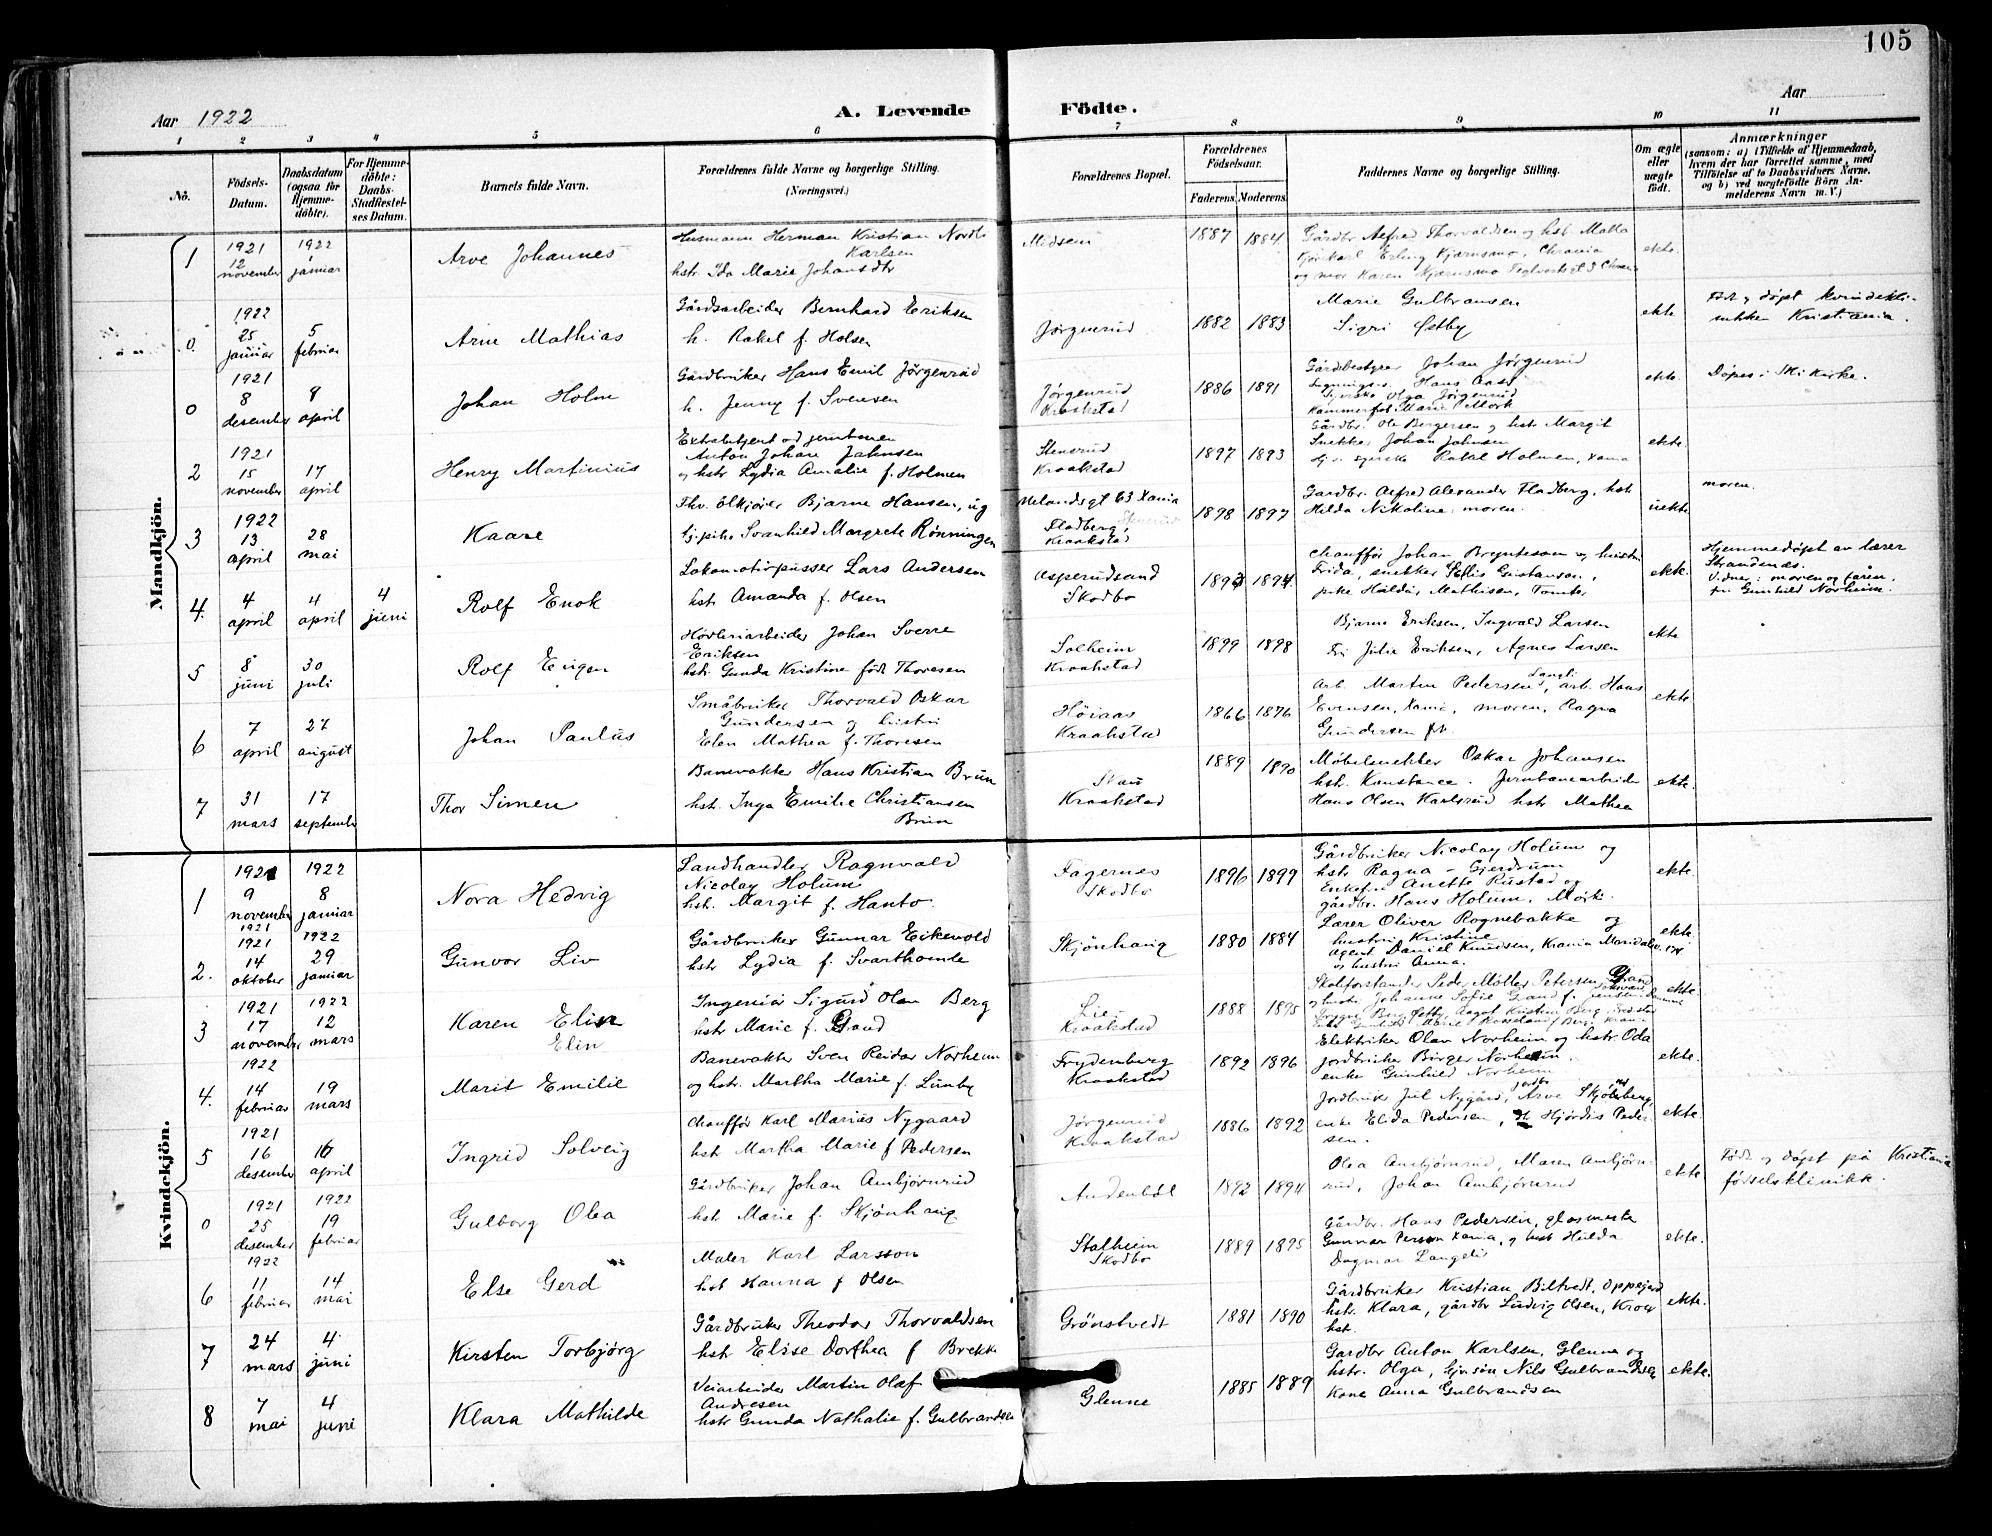 105
Aar 1922
A. Levende
Födte.
Aar
1 2 3 4 5 6 7 8 9 10 11
No.
Födsels-Datum.
Daabsdatum (ogsaa for Hjemme-döbte).
For Hjemme-döbte: Daabs-Stadfæstel-ses Datum.
Barnets fulde Navn.
Forældrenes fulde Navne og borgerlige Stilling. (Næringsvei.)
Forældrenes Bopæl.
Forældrenes Födselsaar.
Faderens.
Moderens.
Faddernes Navne og borgerlige Stilling.
Om ægte eller uægte födt.
Anmærkninger
(saasom: a) i Tilfælde af Hjemmedaab, hvem der har forrettet samme, med Tilföielse af to Daabsvidners Navne, og b) ved uægtefödte Börn An-melderens Navn m. V.)
Mandkjön.
1 1921 12 november 1922 1 januar Arve Johannes Husmann Herman Kristian Nordli Karlsen
hstr. Ida Marie Johansdtr Midsem 1887 1884 Gårdbr. Alfred Thorvaldsen og hst. Matta
Erling Kjærnsmo, Chrania
og mor Karen Kjærnsmo ekte.
0 1922 25 januar 5 februar Arne Mathias Gårdsarbeider Bernhard Eriksen
h. Rakel f. Holsen Jørgenrud 1882 1883 Marie Gulbransen
Sigri Østby ekte Født og døpt kvindekli-
nikken Kristiania.
0 1921 8 desember 9 april Johan Holm Gårdbruker Hans Emil Jørgenrud
h. Jenny f. Svensen Jørgenrud
Kraakstad 1886 1891 Gårdbestyrer Johan Jørgenrud
Hans Aas
Syerske Olga Jørgenrud
Marie Mørk ekte. Døpes i Ski Kirke.
2 1921 15 november 17 april Henry Martinius Extrabetjent ved jernbanen
Anton Johan Jahnsen
og hstr Lydia Amalie f. Holmen Stensrud
Kraakstad 1897 1893 Gårdbr. Ole Bergersen og hstr Margit
Snekker Johan Jahnsen
syerske Rakel Holmen, Xania ekte.
3 1922 13 april 28 mai Kaare Thv. ølkjører Bjarne Hansen, ug
Gj.pike Svanhild Margrete Rønningen 63 Xania
Fladberg,
Kraakstad 1898 1897 Gardbr. Alfred Alexander Fladberg, hst.
Hilda Nikoline, moren. uekte moren.
4. 4 april 4 april 4 juni Rolf Enok Lokomotivpusser Lars Andersen
hstr Amanda f. Olsen Asperudsand
Skodbo 1893 1894. Chauffør Johan Bryntesson og hustru
Frida, snekker Gustavson,
pike Hulda Mathisen, Tomter ekte. Hjemmedøpt av lærer
Strandenæs.
Vidner: moren og
fru Gunhild Norheim.
5 8 juni 30 juli Rolf Eugen Høvleriarbeider Johan Sverre
Eriksen
hstr. Gunda Kristine født Thoresen Solheim
Kraakstad 1899 1898 Bjarne Eriksen, Ingvald Larsen
Fri Julie Eriksen, Agnes Larsen ekte
6 7 april 27 august Johan Paulus Småbruker Thorvald Oskar
Gundersen og hustru
Elen Mathea f. Thoresen Høiaas
Kraakstad 1866 1876 Arb. Martin Pedersen Langli, arb. Hans
Evensen, Xania, moren, Ragna
Gundersen ekte
7 31 mars 17 september Thor Simen Banevokter Hans Kristian Brun
hst. Inga Emilie Christiansen
Brun Skau
Kraakstad 1889 1890 Møbelsnekker Oskar Johansen
hst. Konstance. Jernbanearbeider
Hans Olsen Karlsrud hst Mathea ekte.
Kvindekjön.
1 1921 9 november 1922 8 januar Nora Hedvig Landhandler Ragnvald
Nicolay Holum
hst. Margit f. Hanto. Fagernes
Skodbo 1896 1899 Gårdbruker Nicolay Holum og
hst Ragna - Gjerdrum
Enkefru Anette Rustad og
gårdbr. Hans Holum, Mørk. ekte.
2. 1921 1921 14 oktober 1922 29 januar Gunvor Liv Gårdbruker Gunnar Eikevold
hstr Lydia f. Svarthomle Skjønhaug 1880 1884 Lærer Oliver Rognebakke og
hustru Kristine
agent Daniel Knudsen, Krania
og hustru Anna. ekte
3 1921 17 november 1922 12 mars Karen Elin
Elin Ingeniør Sigurd Olav Berg
hstr Marie f. Gand Lie
Kraakstad 1888 1895 Skoleforstander Peder Møller Petersen Grand
og hustru Johanne Sofie Grand f. Jensen ekte.
4. 1922 14 februar 19 mars Marit Emilie Banevokter Sven Reidar Norheim
og hstr. Martha Marie f. Lunby Frydenberg
Kraakstad 1892 1896 Elektriker Olav Norheim og hstr. Oda
jordbruker Birger Norheim.
enke Gunhild Norheim ekte.
5 1921 16 desember 16 april Ingrid Solveig Chauffør Karl Marius Nygaard
hst. Martha Marie f Pedersen Jørgenrud
Kraakstad 1886 1892 Jordbruker Jul Nygård, jordbr Arve Skjølsberg,
enke Elida Pedersen, Hjørdis Peder-
sen. ekte.
0 1921 25 desember 1922 19 februar Gulborg Olea Gårdbruker Johan Ambjørnrud
hst. Marie f. Skjønhaug. Audenbøl 1892 1894 Olea Ambjørnrud, Maren Ambjørn-
rud, Johan Ambjørnrud ekte Født og døpt på Kristiania
fødselsklinikk.
6 1922 11 februar 14 mai Else Gerd Maler Karl Larsson
hst Hanna f Olsen Stolheim
Skodbo 1889 1895 Gårdbr. Hans Pedersen, glasmester
Gunnar Person Xania, og hst Hulda
Dagmar Langeli ekte.
7 24 mars 4 juni Kirsten Torbjørg Gårdbruker Theodor Thorvaldsen
hstr Elise Dorthea f Brekke Grønstvedt 1881 1890 Gårdbruker Kristian Biltvedt, Oppegård
hstr. Klara, gårdbr Ludvig Olsen, Kroer
hst. ekte.
8 7 mai 4 juni Klara Mathilde Veiarbeider Martin Olaf
Andresen
hstr Gunda Nathalie f. Gulbrandsen Glenne 1885 1889 Gardbr Anton Karlsen, Glenne og
hstr. Olga, Nils Gulbrandsen
Kona Anna Gulbrandsen ekte.